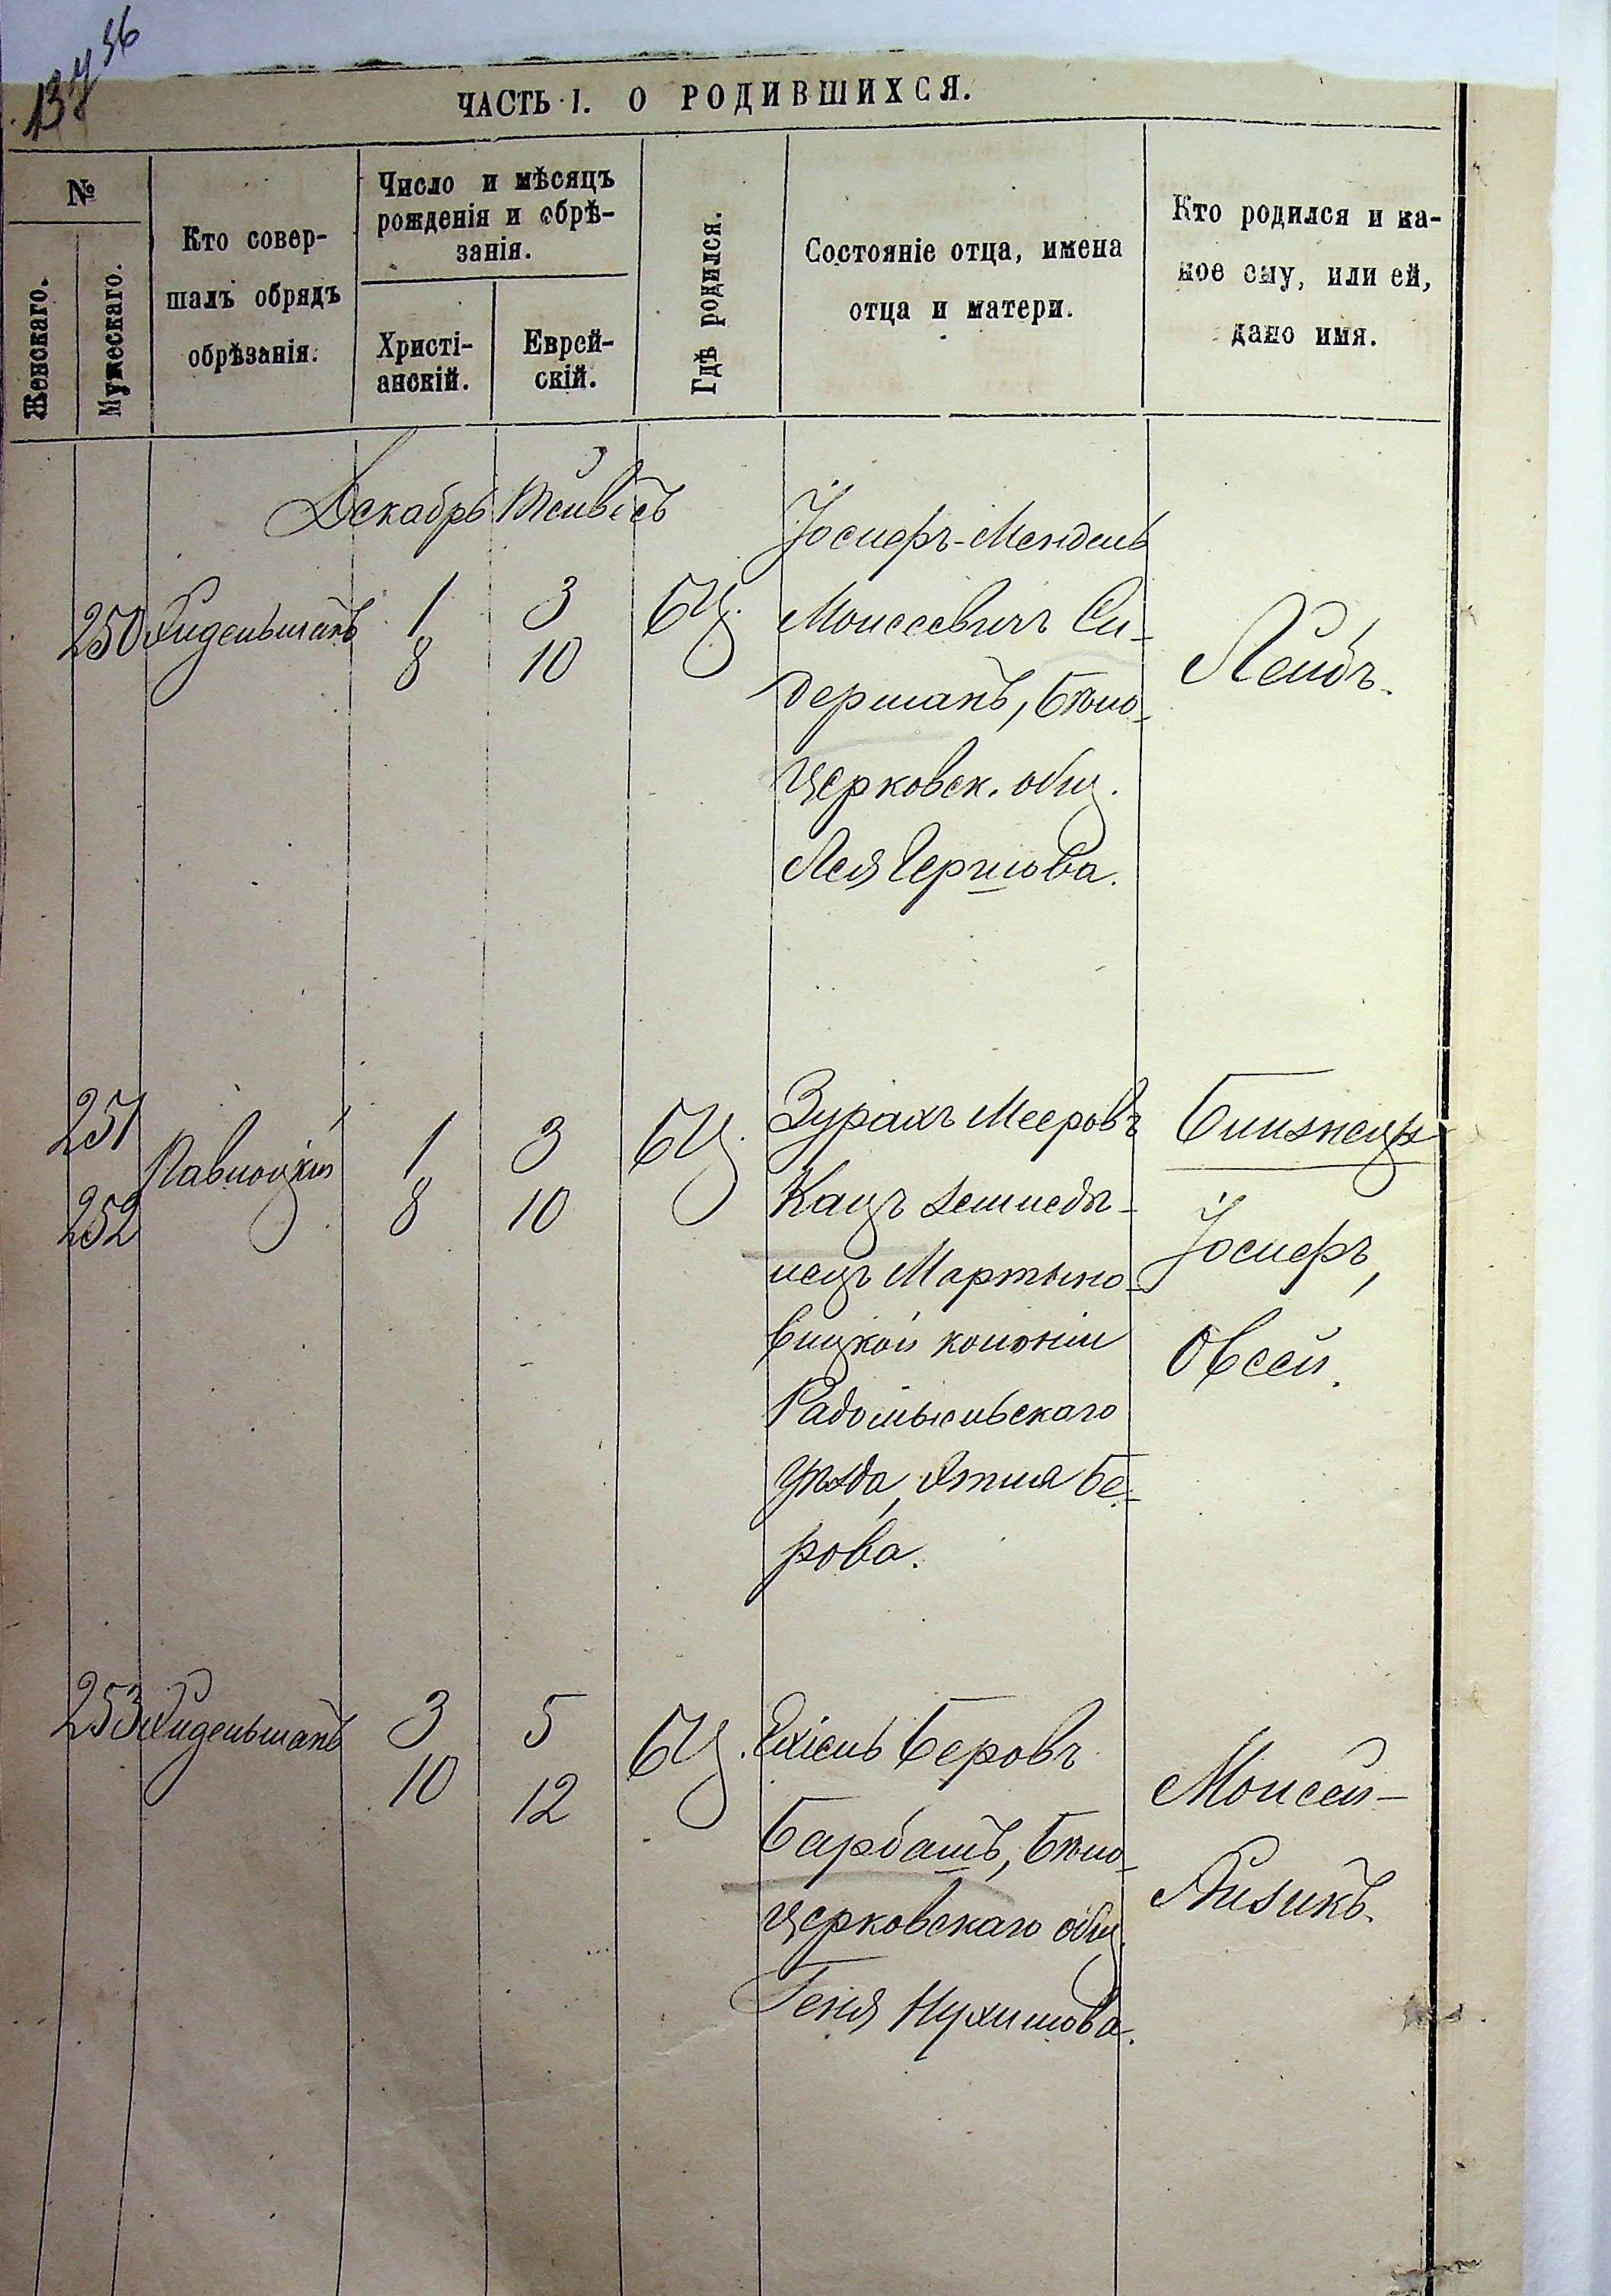 56
ЧАСТЬ I. О РОДИВШИХСЯ.
№
Женскаго.
Мужескаго.
Кто совер-
шалъ обрядъ
обрѣзанія.
Число и мѣсяцъ
рожденія и обрѣ-
занія.
Христі-
анскій.
Еврей-
скій.
Гдѣ родился.
Состояніе отца, имена
отца и матери.
Кто родился и ка-
кое ему, или ей,
дано имя.
Декабрь Тейвісъ
250
1 3
8 10
БЦ.
Іосифъ-Мендель
Моисеевичъ Си-
дерманъ, Бѣло-
церковск. общ.
Лея Гершова.
Лейбъ.
251
252
Павлоцкій
1 3
8 10
БЦ.
Зурахъ Мееровъ
Кацъ земледѣ-
лецъ Мартыно-
вицкой колоніи
Радомысльскаго
уѣзда, Этля Бе-
рова.
Близнецы
Іосифъ,
Овсей.
253
3 5
10 12
БЦ.
Ехіель Беровъ
Барбашъ, Бѣло-
церковскаго общ.
Геня Нухимова.
Моисей-
Айзикъ.